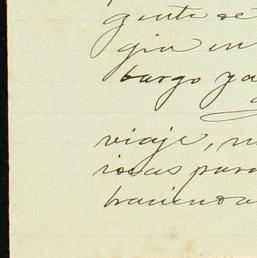 gente se
gia en
bargo ya
viaje, n
iosas para
haciend